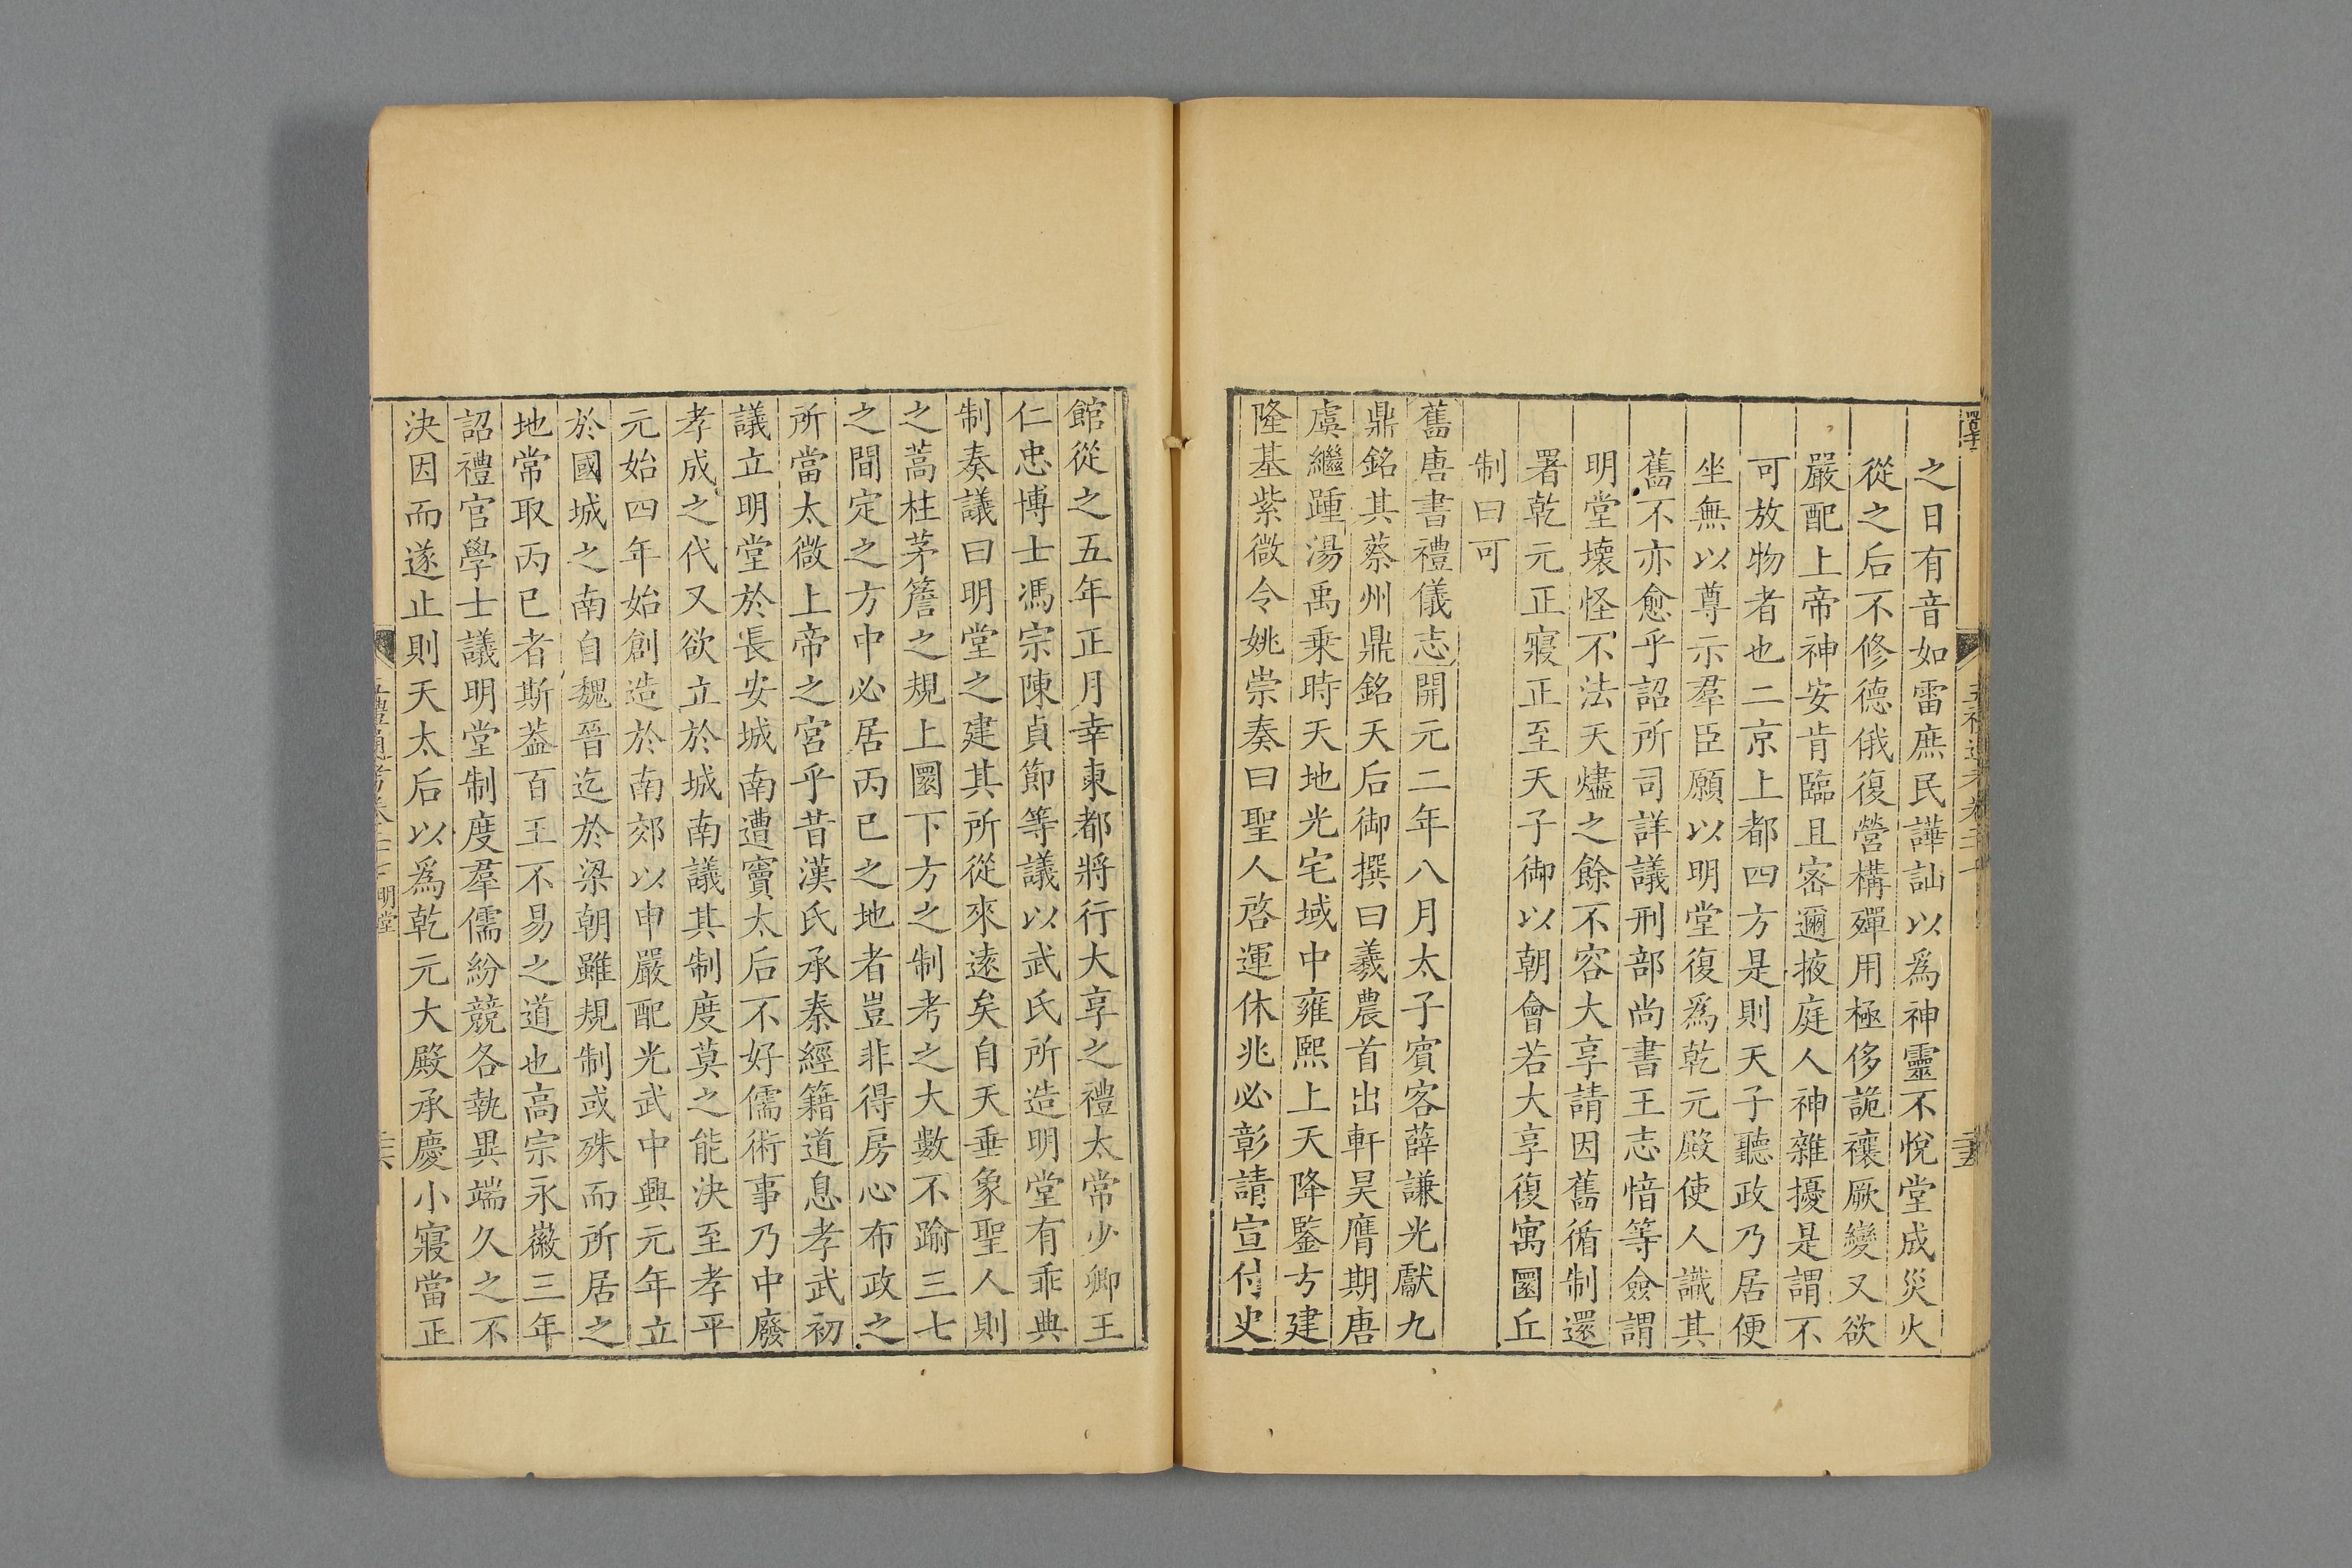 之日有音如雷庶民譁訕以爲神靈不悅堂成災火
從之后不修德俄復營構殫用極侈詭禳厥變又欲
嚴配上帝神安肯臨且密邇掖庭人神雜擾是謂不
可放物者也二京上都四方是則天子聽政乃居便
坐無以尊示羣臣願以明堂復爲乾元殿使人識其
舊不亦愈乎詔所司詳議刑部尚書王志愔等僉謂
明堂壞怪不法天燼之餘不容大享請因舊循制還
署乾元正寢正至天子御以朝會若大享復寓圜丘
制曰可
舊唐書禮儀志開元二年八月太子賓客薛謙光獻九
鼎銘其蔡州鼎銘天后御撰曰羲農首出軒昊膺期唐
虞繼踵湯禹乗時天地光宅域中雍熙上天降鑒方建
隆基紫微令姚崇奏曰聖人啓運休兆必彰請宣付史
館從之五年正月幸東都將行大享之禮太常少卿王
仁忠博士馮宗陳貞節等議以武氏所造明堂有乖典
制奏議曰明堂之建其所從來遠矣自天垂象聖人則
之蒿柱茅簷之規上圜下方之制考之大數不踰三七
之間定之方中必居丙巳之地者豈非得房心布政之
所當太微上帝之宮乎昔漢氏承秦經籍道息孝武初
議立明堂於長安城南遭竇太后不好儒術事乃中廢
孝成之代又欲立於城南議其制度莫之能決至孝平
元始四年始創造於南郊以申嚴配光武中興元年立
於國城之南自魏晉迄於梁朝雖規制或殊而所居之
地常取丙巳者斯葢百王不易之道也高宗永徽三年
詔禮官學士議明堂制度羣儒紛競各執異端久之不
決因而遂止則天太后以爲乾元大殿承慶小寢當正
明堂